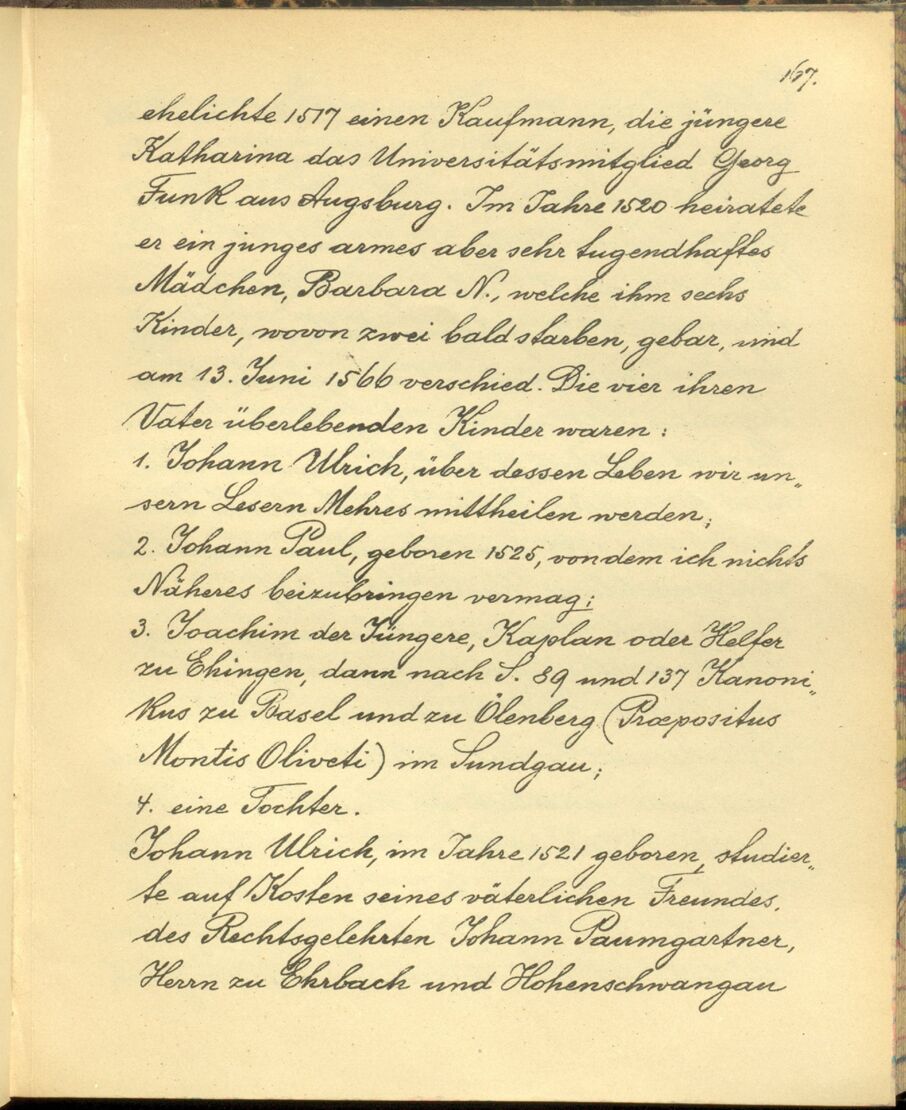 167.
ehelichte 1517 einen Kaufmann, die jüngere
Katharina das Universitätsmitglied Georg
Funk aus Augsburg. Im Jahre 1520 heiratete
er ein junges armes aber sehr tugendhaftes
Mädchen, Barbara N., welche ihm sechs
Kinder, wovon zwei bald starben, gebar, und
am 13. Juni 1566 verschied. Die vier ihren
Vater überlebenden Kinder waren:
1. Johann Ulrich, über dessen Leben wir un„
sern Lesern Mehres mittheilen werden;
2. Johann Paul, geboren 1525, von dem ich nichts
Näheres beizubringen vermag;
3. Joachim der Jüngere, Kaplan oder Helfer
zu Ehingen, dann nach S. 89 und 137 Kanoni„
kus zu Basel und zu Ölenberg (Præpositus
Montis Oliveti) im Sundgau;
4. eine Tochter.
Johann Ulrich, im Jahre 1521 geboren, studier„
te auf Kosten seines väterlichen Freundes,
des Rechtsgelehrten Johann Paumgartner,
Herrn zu Ehrbach und Hohenschwangau